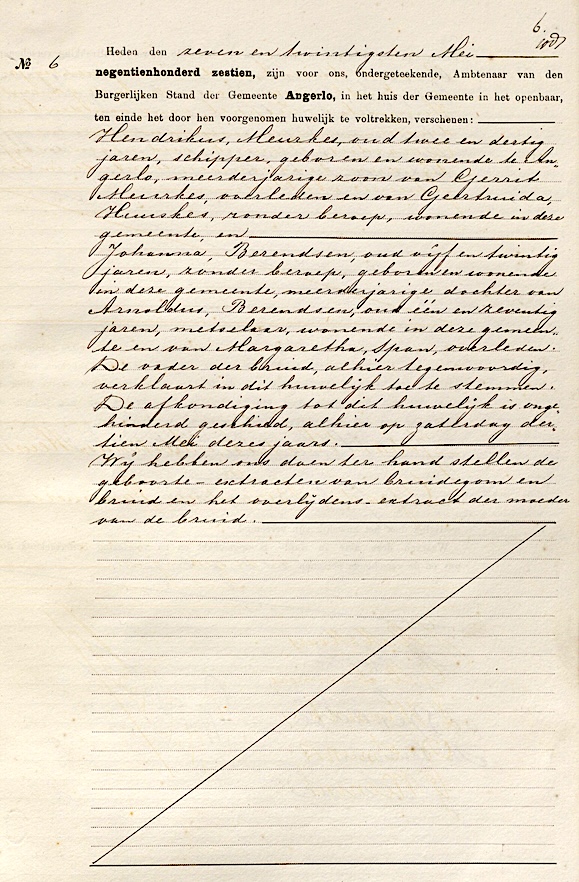 6.
№ 6
Heden den zeven en twintigsten Mei
negentienhonderd zestien, zijn voor ons, ondergeteekende, Ambtenaar van den
Burgerlijken Stand der Gemeente Angerlo, in het huis der Gemeente in het openbaar,
ten einde het door hen voorgenomen huwelijk te voltrekken, verschenen:
Hendrikus, Meurkes, oud twee en dertig
jaren, schipper, geboren en wonende te An„
gerlo, meerderjarige zoon van Gerrit
Meurkes, overleden en van Geertruida,
Huiskes, zonder beroep, wonende in deze
gemeente, en
Johanna, Berendsen, oud vijf en twintig
jaren, zonder beroep, geboren en wonende
in deze gemeente, meerderjarige dochter van
Arnoldus, Berendsen, oud één en zeventig
jaren, metselaar, wonende in deze gemeen„
te en van Margaretha, Span, overleden.
De vader der bruid, alhier tegenwoordig,
verklaart in dit huwelijk toe te stemmen.
De afkondiging tot dit huwelijk is onge„
hinderd geschied, alhier op zaterdag der„
tien Mei dezes jaars.
Wij hebben ons doen ter hand stellen de
geboorte-extracten van bruidegom en
bruid en het overlijdens-extract der moeder
van de bruid.